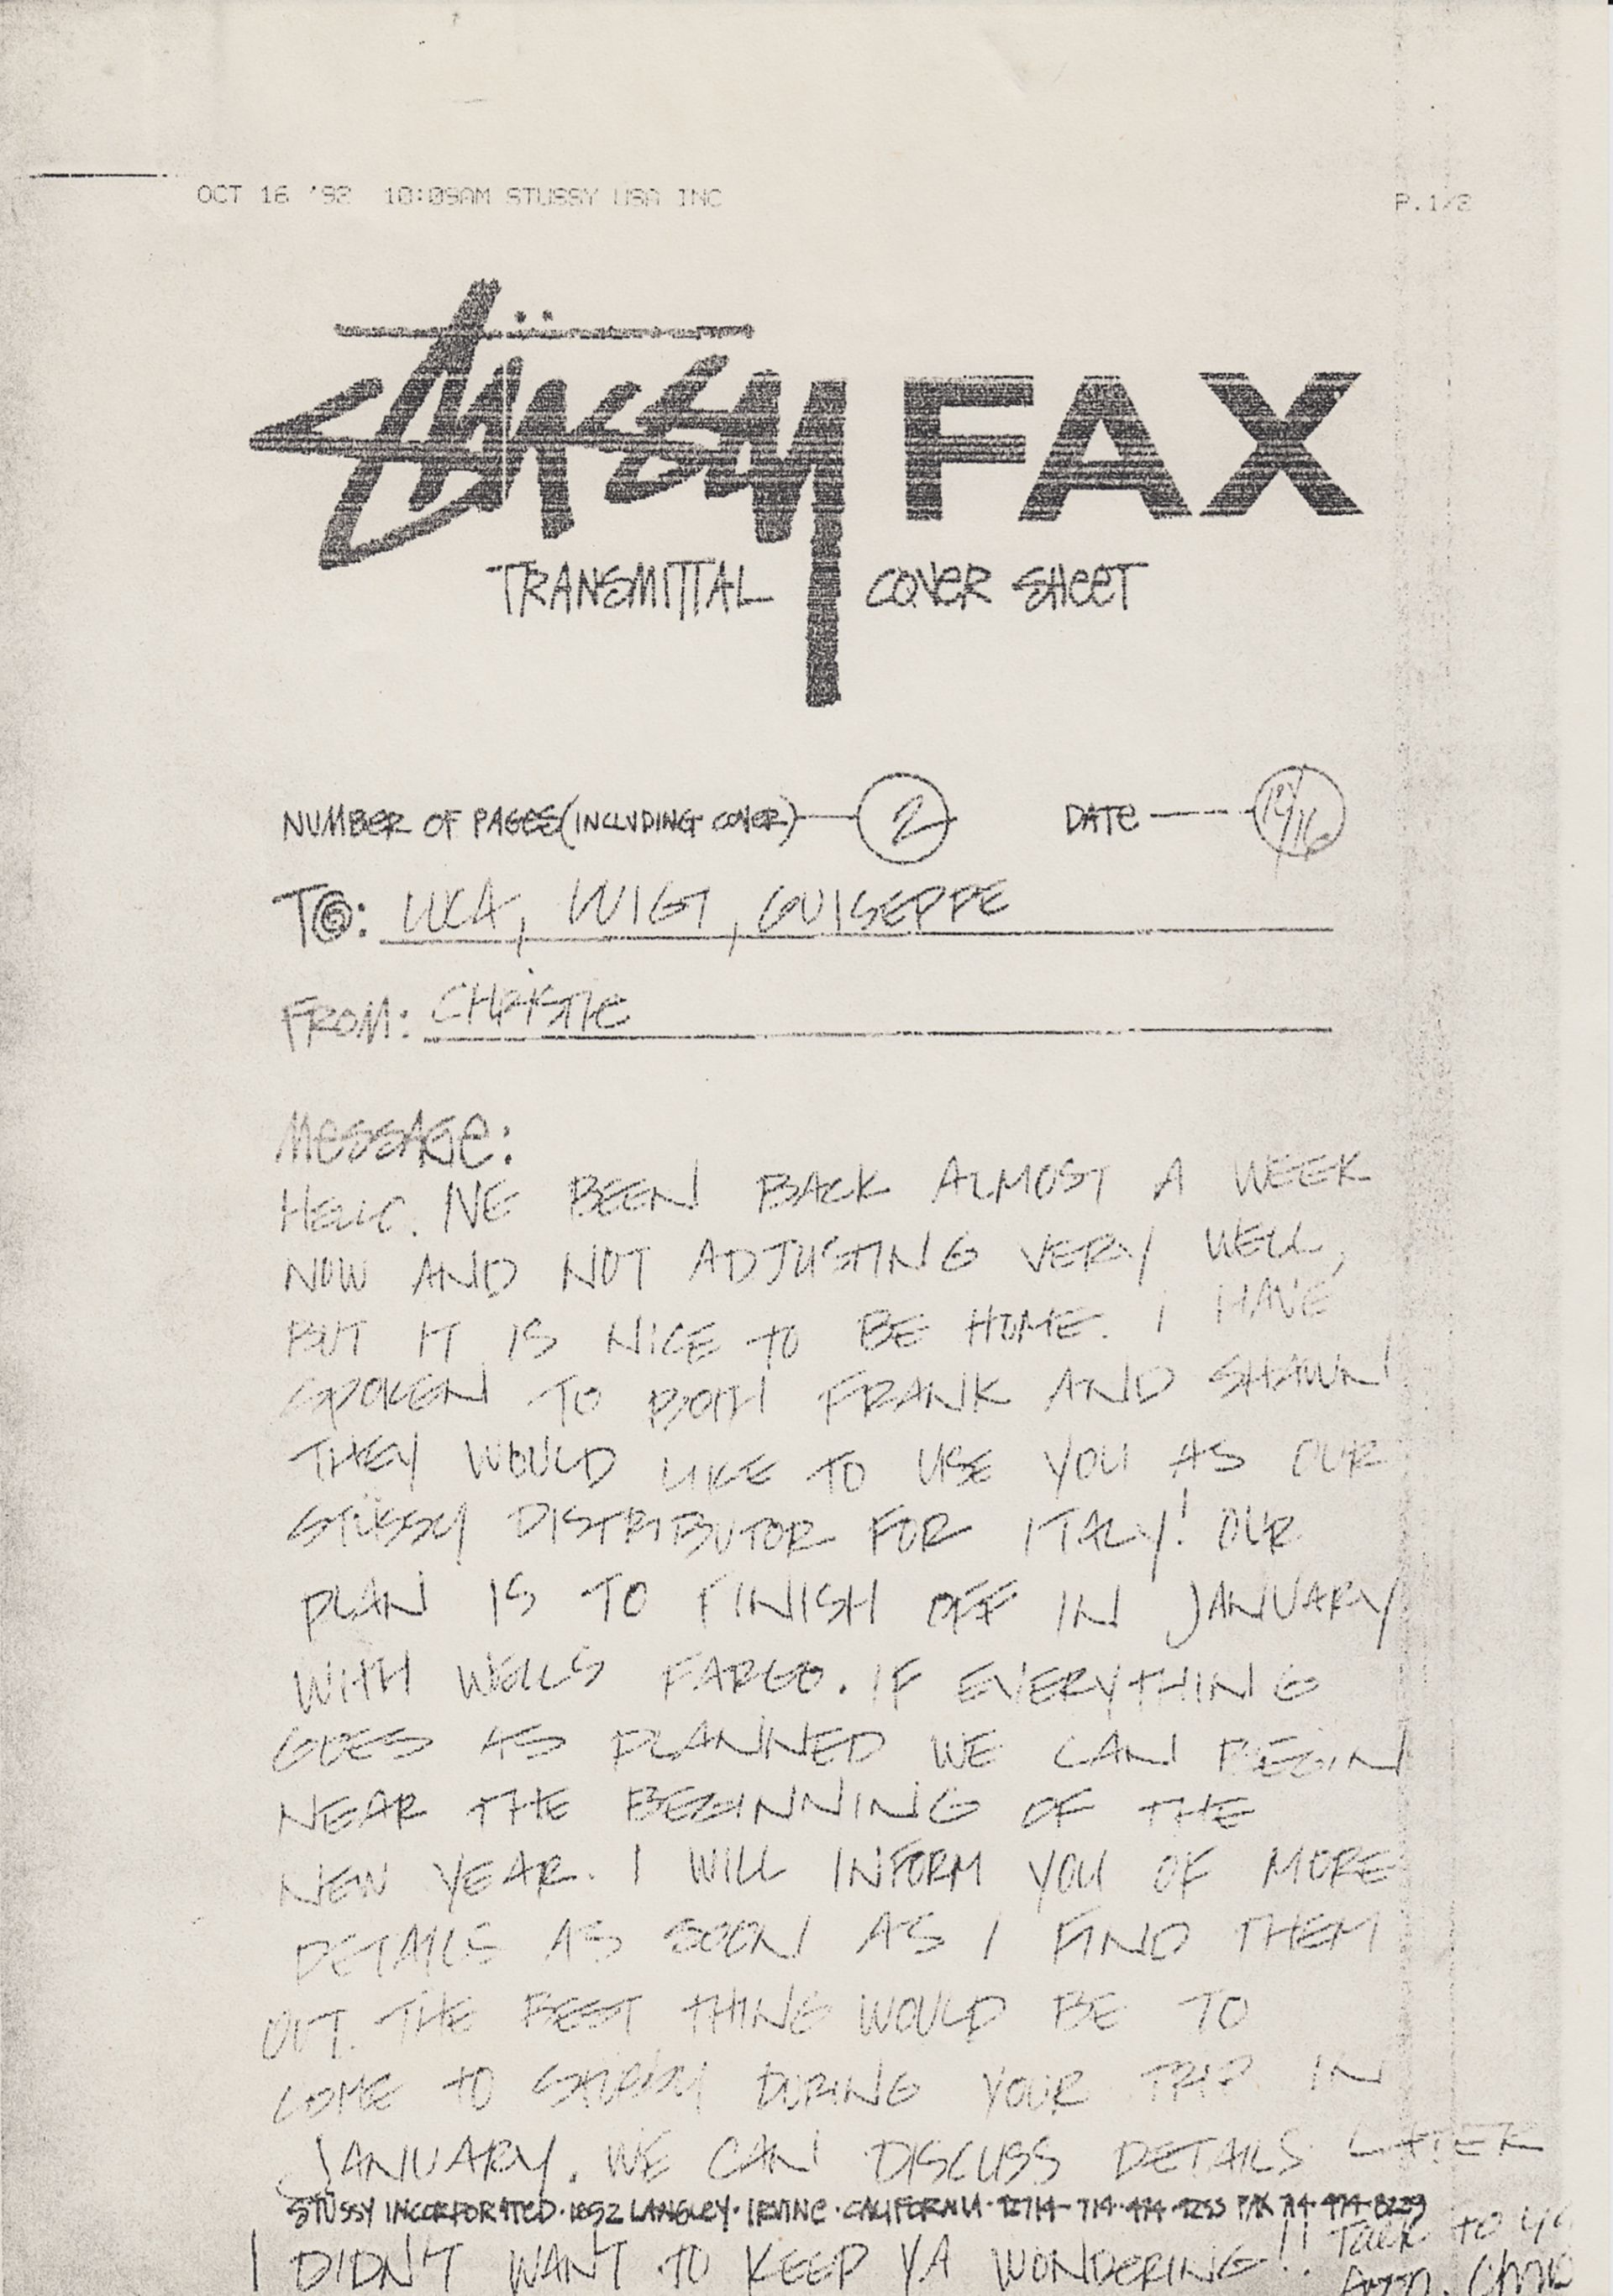 OCT 16 '92 10:09AM STUSSY USA INC P.1/2
Stüssy FAX
TRANSMITTAL COVER SHEET
NUMBER OF PAGES (INCLUDING COVER) — 2 DATE --- 10/16
TO: LUCA, LUIGI, GUISEPPE
FROM: CHRISTIE
MESSAGE:
HELLO. I'VE BEEN BACK ALMOST A WEEK
NOW AND NOT ADJUSTING VERY WELL,
BUT IT IS NICE TO BE HOME. I HAVE
SPOKEN TO BOTH FRANK AND SHAWN
THEY WOULD LIKE TO USE YOU AS OUR
STÜSSY DISTRIBUTOR FOR ITALY! OUR
PLAN IS TO FINISH OFF IN JANUARY
WITH WELLS FARGO. IF EVERYTHING
GOES AS PLANNED WE CAN BEGIN
NEAR THE BEGINNING OF THE
NEW YEAR. I WILL INFORM YOU OF MORE
DETAILS AS SOON AS I FIND THEM
OUT. THE BEST THING WOULD BE TO
COME TO STÜSSY DURING YOUR TRIP IN
JANUARY. WE CAN DISCUSS DETAILS LATER
STÜSSY INCORPORATED · 1852 LANGLEY · IRVINE · CALIFORNIA · 92714 - 714 · 474 · 9255 FAX 714 · 474 · 8229
I DIDN'T WANT TO KEEP YA WONDERING!! TALK TO